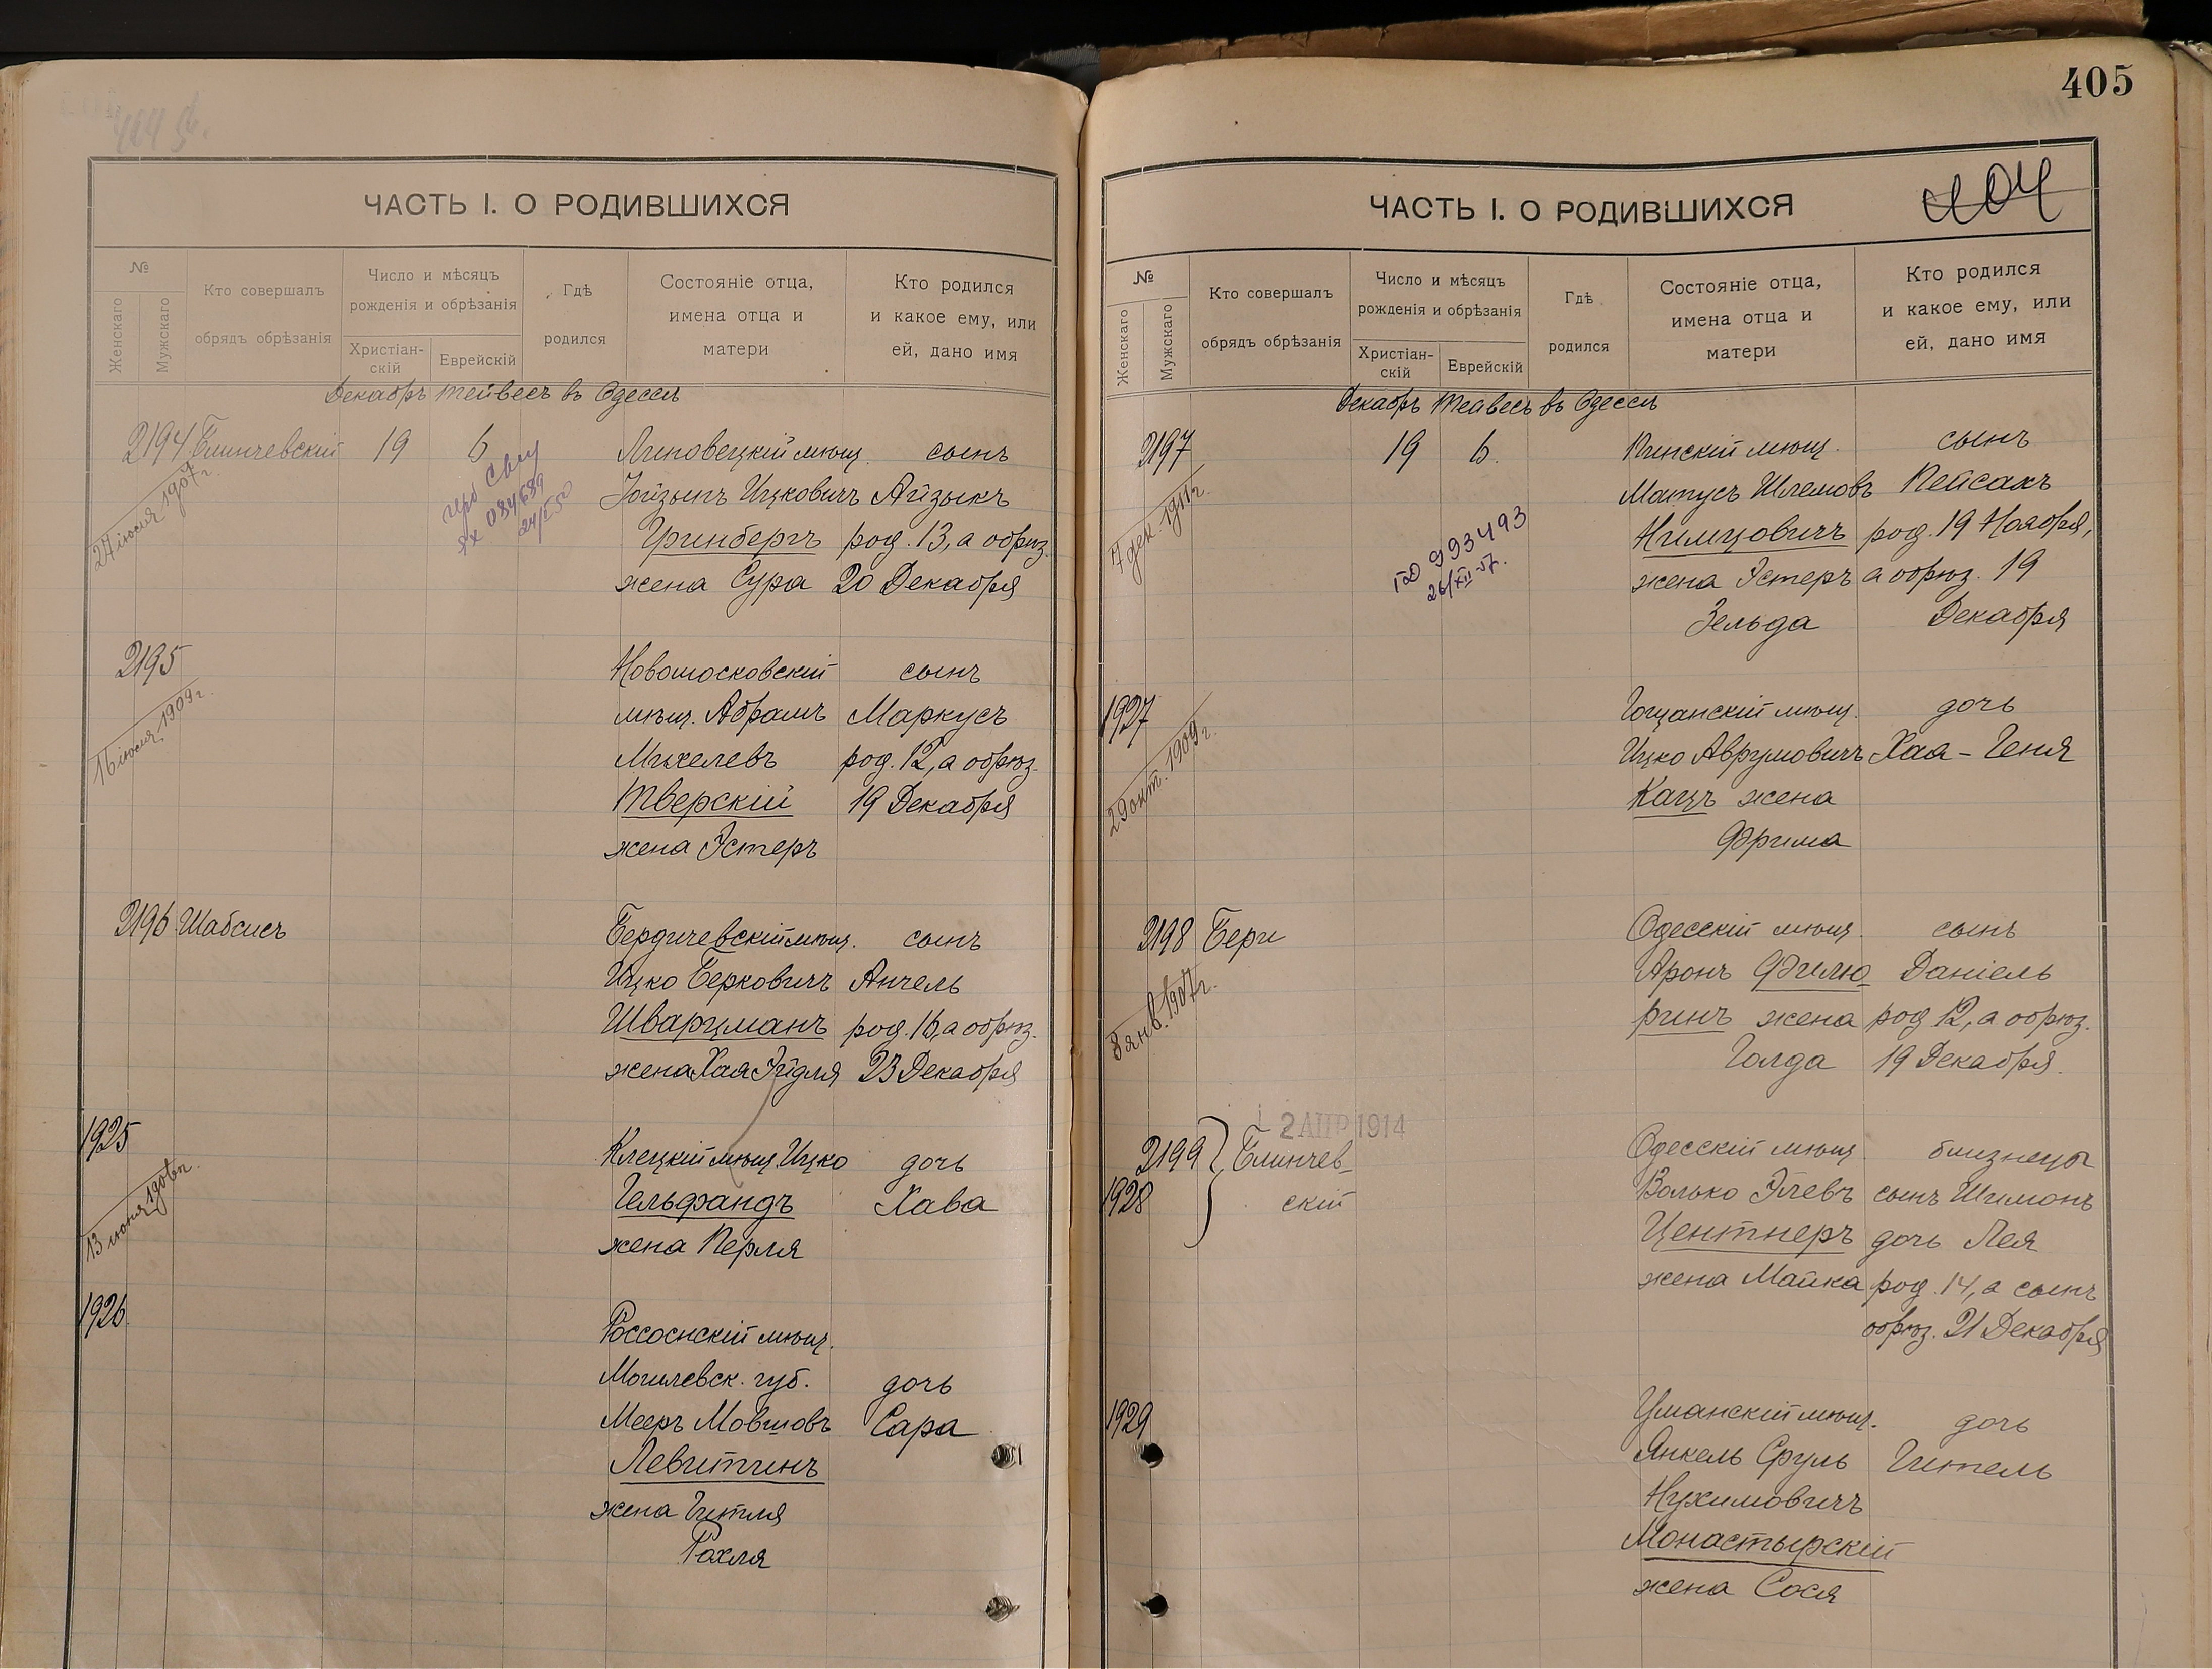 ЧАСТЬ I. О РОДИВШИХСЯ
№
Женскаго
Мужскаго
Кто совершалъ
обрядъ обрѣзанія
Число и мѣсяцъ
рожденія и обрѣзанія
Христіан-
скій
Еврейскій
Гдѣ
родился
Состояніе отца,
имена отца и
матери
Кто родился
и какое ему, или
ей, дано имя
Декабрь Тейвесъ въ Одессѣ
2194 Блинчевскій 19 6 Липовецкій мѣщ. сынъ
27 іюля 1907 г.
084689
Ицковичъ Айзыкъ
Гринбергъ род. 13, а обрѣз.
жена Сура 20 Декабря
2195 Новомосковскій сынъ
16 іюля 1909 г.
мѣщ. Абрамъ Маркусъ
Михелевъ род. 12, а обрѣз.
Тверскій 19 Декабря
жена Эстеръ
2196 Шабсисъ Бердичевскій мѣщ. сынъ
Ицко Берковичъ Анчель
Шварцманъ род. 16, а обрѣз.
жена Хая Эйдля 23 Декабря
1925 Клецкій мѣщ. Ицко дочь
13 іюня
Гельфандъ Хава
жена Перля
1926 Россоснскій мѣщ.
Могилевск. губ. дочь
Мееръ Мовшовъ Сара
Левитинъ
жена Гитля
Рахля
405
404
ЧАСТЬ I. О РОДИВШИХСЯ
№
Женскаго
Мужскаго
Кто совершалъ
обрядъ обрѣзанія
Число и мѣсяцъ
рожденія и обрѣзанія
Христіан-
скій
Еврейскій
Гдѣ
родился
Состояніе отца,
имена отца и
матери
Кто родился
и какое ему, или
ей, дано имя
Декабрь Тейвесъ въ Одессѣ
2197 19 6. Пинскій мѣщ. сынъ
7 дек. 1911 г.
993493
26/XII-57.
Матусъ Шлемовъ Пейсахъ
Нимцовичъ род. 19 Ноября,
жена Эстеръ а обрѣз. 19
Зельда Декабря
1927 Гощанскій мѣщ. дочь
29 окт. 1909 г.
Ицко Аврумовичъ Хая-Геня
Кацъ жена
Фрима
2198 Бери Одесскій мѣщ. сынъ
8 янв. 1907 г.
Аронъ Филю- Даніель
ринъ жена род 12, а обрѣз.
Голда 19 Декабря.
2 АПР 1914
2199 Блинчев- Одесскій мѣщ. близнецы
1928 скій Волько Элевъ сынъ Шимонъ
Центнеръ дочь Лея
жена Малка род. 14, а сынъ
обрѣз. 21 Декабря
1929 Уманскій мѣщ. дочь
Янкель Сруль Гитель
Нухимовичъ
Монастырскій
жена Сося